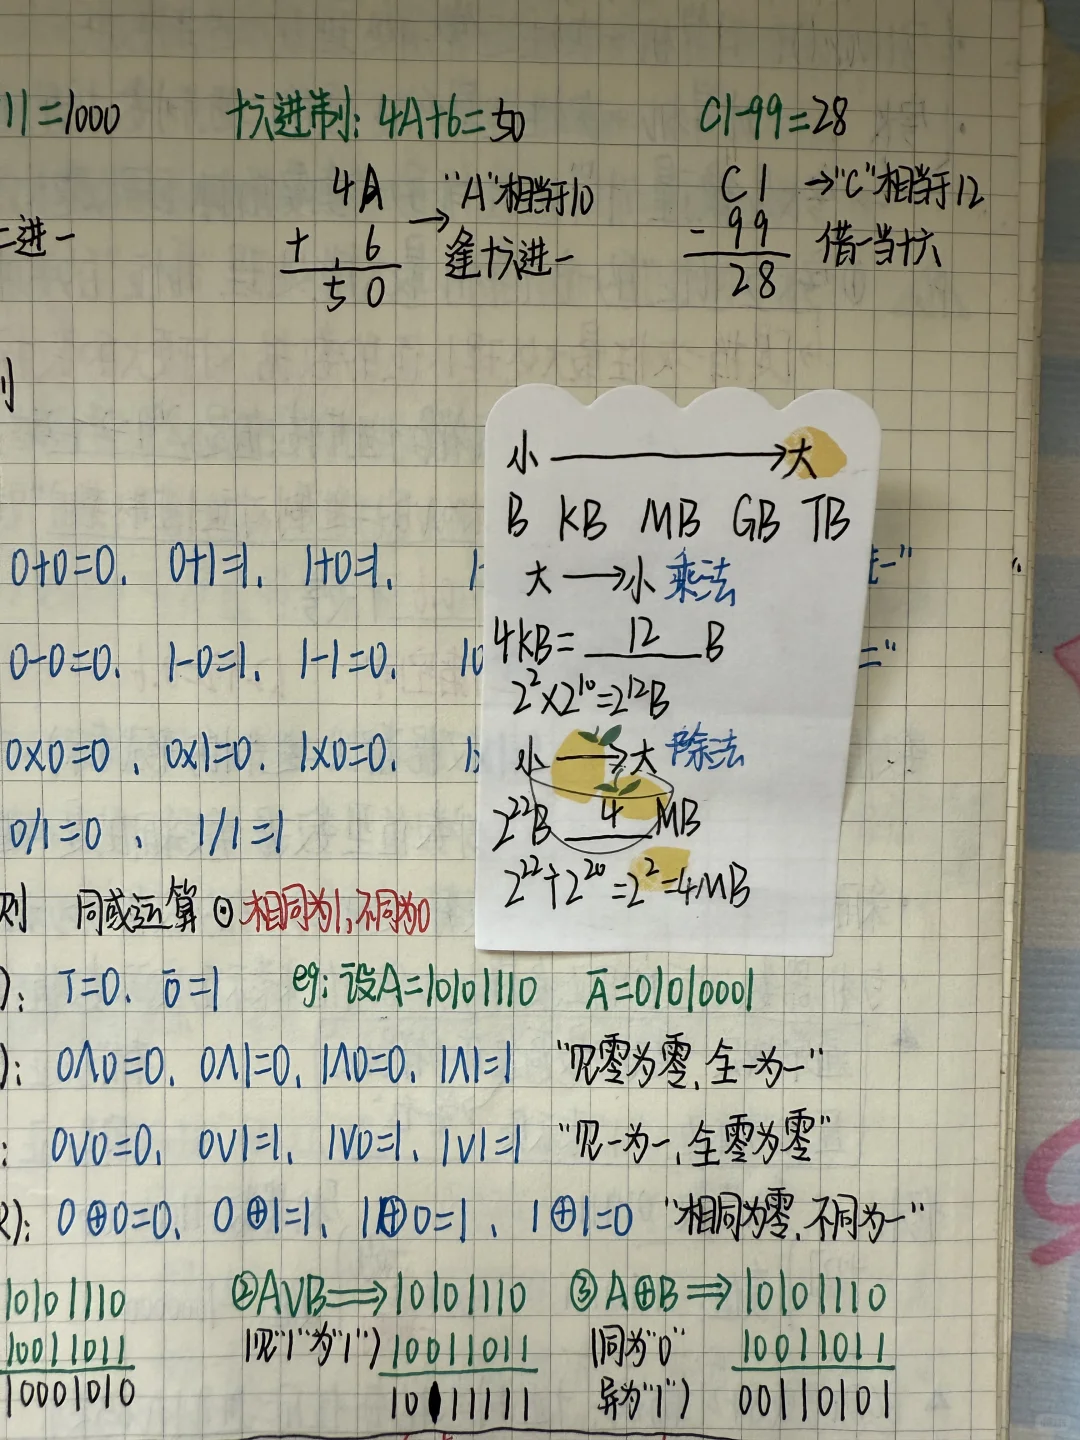 11=1000 十六进制: 4A+6=50 C1-99=28
4A "A"相当于10 C1 →"C"相当于12
二进一 + 6 → 逢十六进一 - 99 借一当十六
50 28
小→大
B KB MB GB TB
大→小 乘法
4KB=12B
2²×2¹⁰=2¹²B
小→大 除法
2²²B 4 MB
2²²÷2²⁰=2²=4MB
0+0=0. 0+1=1. 1+0=1.
0-0=0. 1-0=1. 1-1=0. 10
0×0=0, 0×1=0. 1×0=0.
0/1=0, 1/1=1
则 同或运算⊙相同为1,不同为0
): 1̅=0. 0̅=1 eg: 设A=10101110 A̅=01010001
): 0∧0=0, 0∧1=0, 1∧0=0, 1∧1=1 "见零为零,全一为一"
: 0∨0=0, 0∨1=1, 1∨0=1, 1∨1=1 "见一为一,全零为零"
): 0⊕0=0, 0⊕1=1, 1⊕0=1, 1⊕1=0 "相同为零,不同为一"
10101110 ②A∨B⟹10101110 ③A⊕B⟹10101110
10011011 (见"1"为"1") 10011011 (同为"0" 10011011
10001010 10111111 异为"1") 00110101